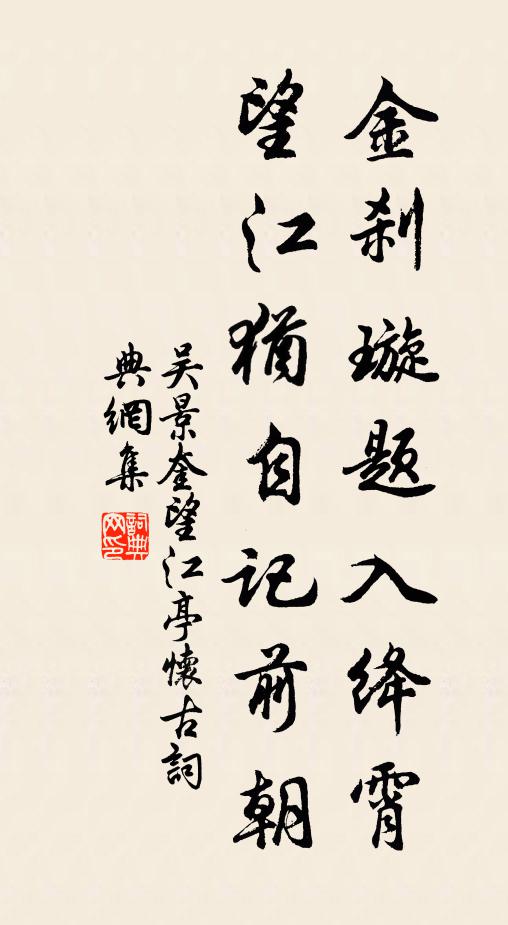 金刹璇题入绛霄
望江犹自记前朝
吴景奎望江亭懷古詞
典網集
詞典网印